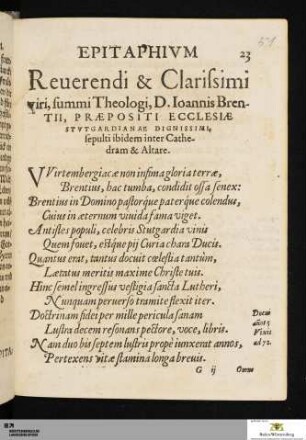 EPITAPHIVM
23
Reuerendi & Clarissimi
viri, summi Theologi, D. Ioannis Bren-
TII, PRÆPOSITI ECCLESIÆ
STVTGARDIANAE DIGNISSIMI,
sepulti ibidem inter Cathe-
dram & Altare.
VVirtembergiacæ non infima gloria terræ,
Brentius, hac tumba, condidit ossa senex:
Brentius in Domino pastorq́ue paterq́ue colendus,
Cuius in æternum viuida fama viget.
Antistes populi, celebris Stutgardia vinis
Quem fouet, estq́ue pij Curia chara Ducis.
Quantus erat, tantus docuit cœlestia tantùm,
Lætatus meritis maxime Christe tuis.
Hinc semel ingressus vestigia sancta Lutheri,
Nunquam peruerso tramite flexit iter.
Doctrinam fidei per mille pericula sanam
Lustra decem resonans pectore, voce, libris.
Nam duo bis septem lustris propè iunxerat annos,
Pertexens vitæ stamina longa breuis.
Docuit
annis
Vixit
ad 72.
G ij